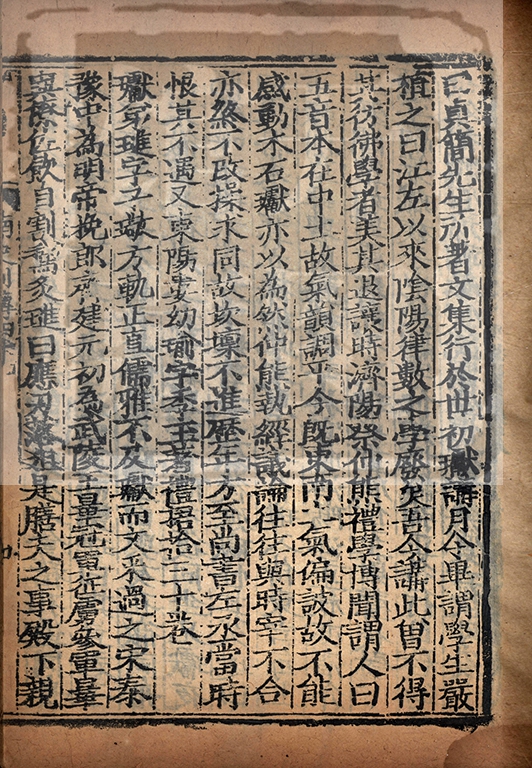 曰貞簡先生所著文集行於世初瓛講月令畢謂學生嚴
植之曰江左以來陰陽律數之學廢矣吾今講此曾不得
其彷彿學者美其退讓時濟陽蔡仲熊禮學博聞謂人曰
五音本在中土故氣韻調平今既東南土氣偏詖故不能
感動木石瓛亦以為然仲熊執經議論往往與時宰不合
亦終不改操求同故坎壈不進歷年方至尚書左丞當時
恨其不遇又東陽婁幼瑜字季玉著禮捃拾三十卷
瓛弟璡字子璥方軌正直儒雅不及瓛而文采過之宋泰
豫中為明帝挽郎齊建元初為武陵王曅冠軍征虜參軍曅
與僚佐飲自割鵞炙璡曰應刃落俎是膳夫之事殿下親